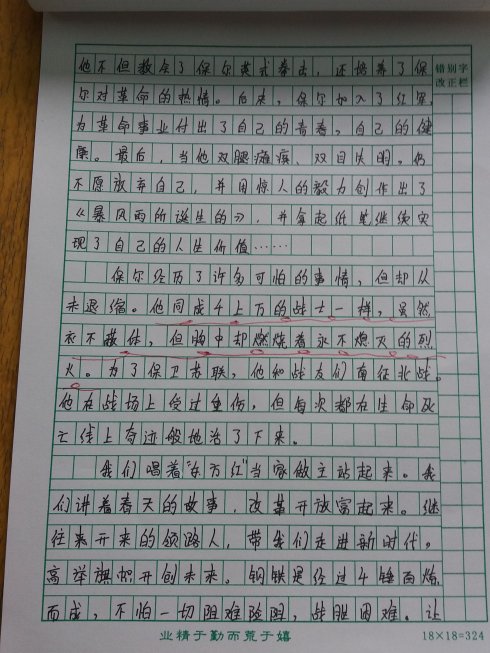 他不但教会了保尔英式拳击，还培养了保
错别字
改正栏
尔对革命的热情。后来，保尔加入了红军，
为革命事业付出了自己的青春，自己的健
康。最后，当他双腿瘫痪、双目失明。仍
不愿放弃自己，并用惊人的毅力创作出了
《暴风雨所诞生的》，并拿起纸笔继续实
现了自己的人生价值……
保尔经历了许多可怕的事情，但却从
未退缩。他同成千上万的战士一样，虽然
衣不蔽体，但胸中却燃烧着永不熄灭的烈
火。为了保卫苏联，他和战友们南征北战。
他在战场上受过重伤，但每次都在生命死
亡线上奇迹般地活了下来。
我们唱着“东方红”当家做主站起来。我
们讲着春天的故事，改革开放富起来。继
往来开来的领路人，带我们走进新时代。
高举旗帜开创未来。钢铁是经过千锤百炼
而成，不怕一切阻难险阻，战胜困难。让
业精于勤而荒于嬉
18×18=324